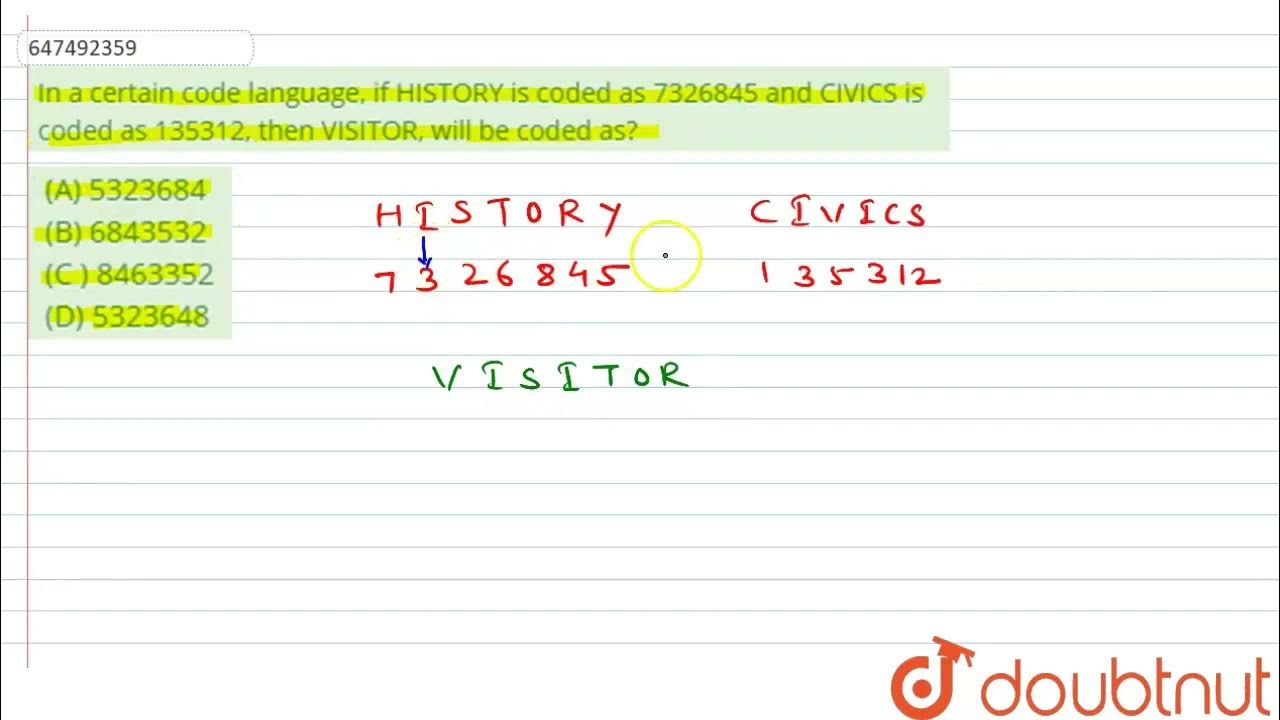 647492359
In a certain code language, if HISTORY is coded as 7326845 and CIVICS is
coded as 135312, then VISITOR, will be coded as?
(A) 5323684
(B) 6843532
(C ) 8463352
(D) 5323648
H I S T O R Y C I V I C S
7 3 2 6 8 4 5 1 3 5 3 1 2
V I S I T O R
doubtnut